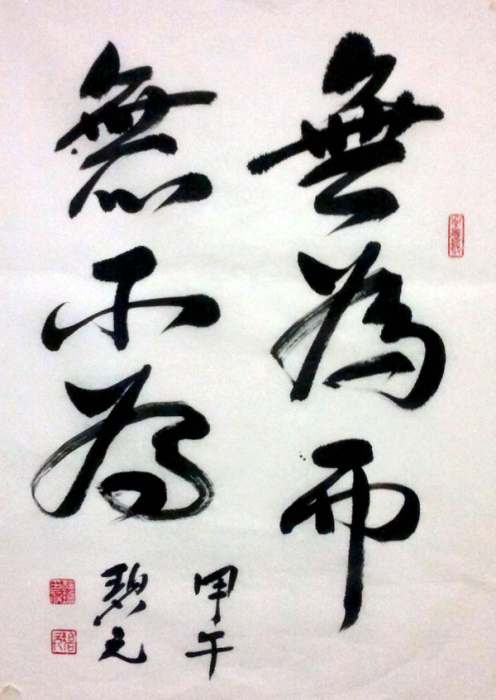 無為而
無不為
甲午
碧元